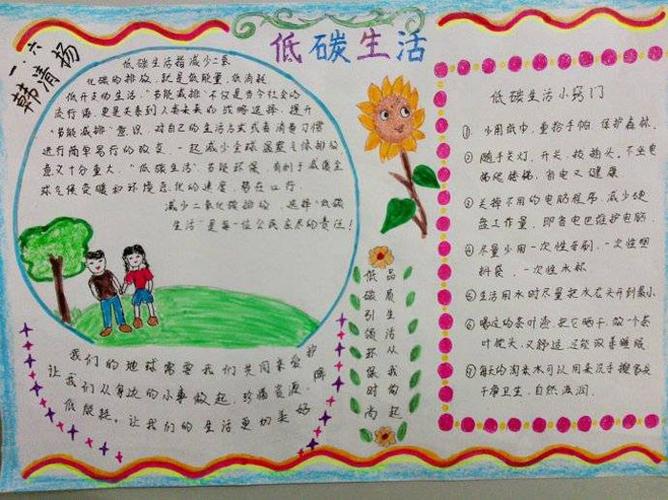 低碳生活
一.六
韩清扬
低碳生活指减少二氧
化碳的排放,就是低能量,低消耗
低开支的生活,"节能减排"不仅是当今社会的
流行语,更是关系到人类未来的战略选择,提升
"节能减排"意识,对自己的生活方式或者消费习惯
进行简单易行的改变,一起减少全球温室气体排放
意义十分重大,"低碳生活"节能环保,有利于减缓全
球气候变暖和环境恶化的速度,势在必行.
减少二氧化碳排放,选择"低碳
生活"是每一位公民应尽的责任!
我们的地球需要我们共同来爱护
让我们从身边的小事做起,珍惜资源,降
低能耗,让我们的生活更加美好
低碳引领环保时尚
品质生活从我句起
低碳生活小窍门
①少用纸巾,重拾手帕,保护森林.
②随手关灯、开关、拔插头,不坐电
梯爬楼梯,省电又健康
③关掉不用的电脑程序,减少硬
盘工作量,即省电也维护电脑.
④尽量少用一次性牙刷,一次性塑
料袋,一次性水杯
⑤生活用水时尽量把水龙头开到最小
⑥喝过的茶叶渣,把它晒干,做一个茶
叶枕头,又舒适,还能改善睡眠
⑦每天的淘米水可以用来洗手擦家具
干净卫生,自然滋润.